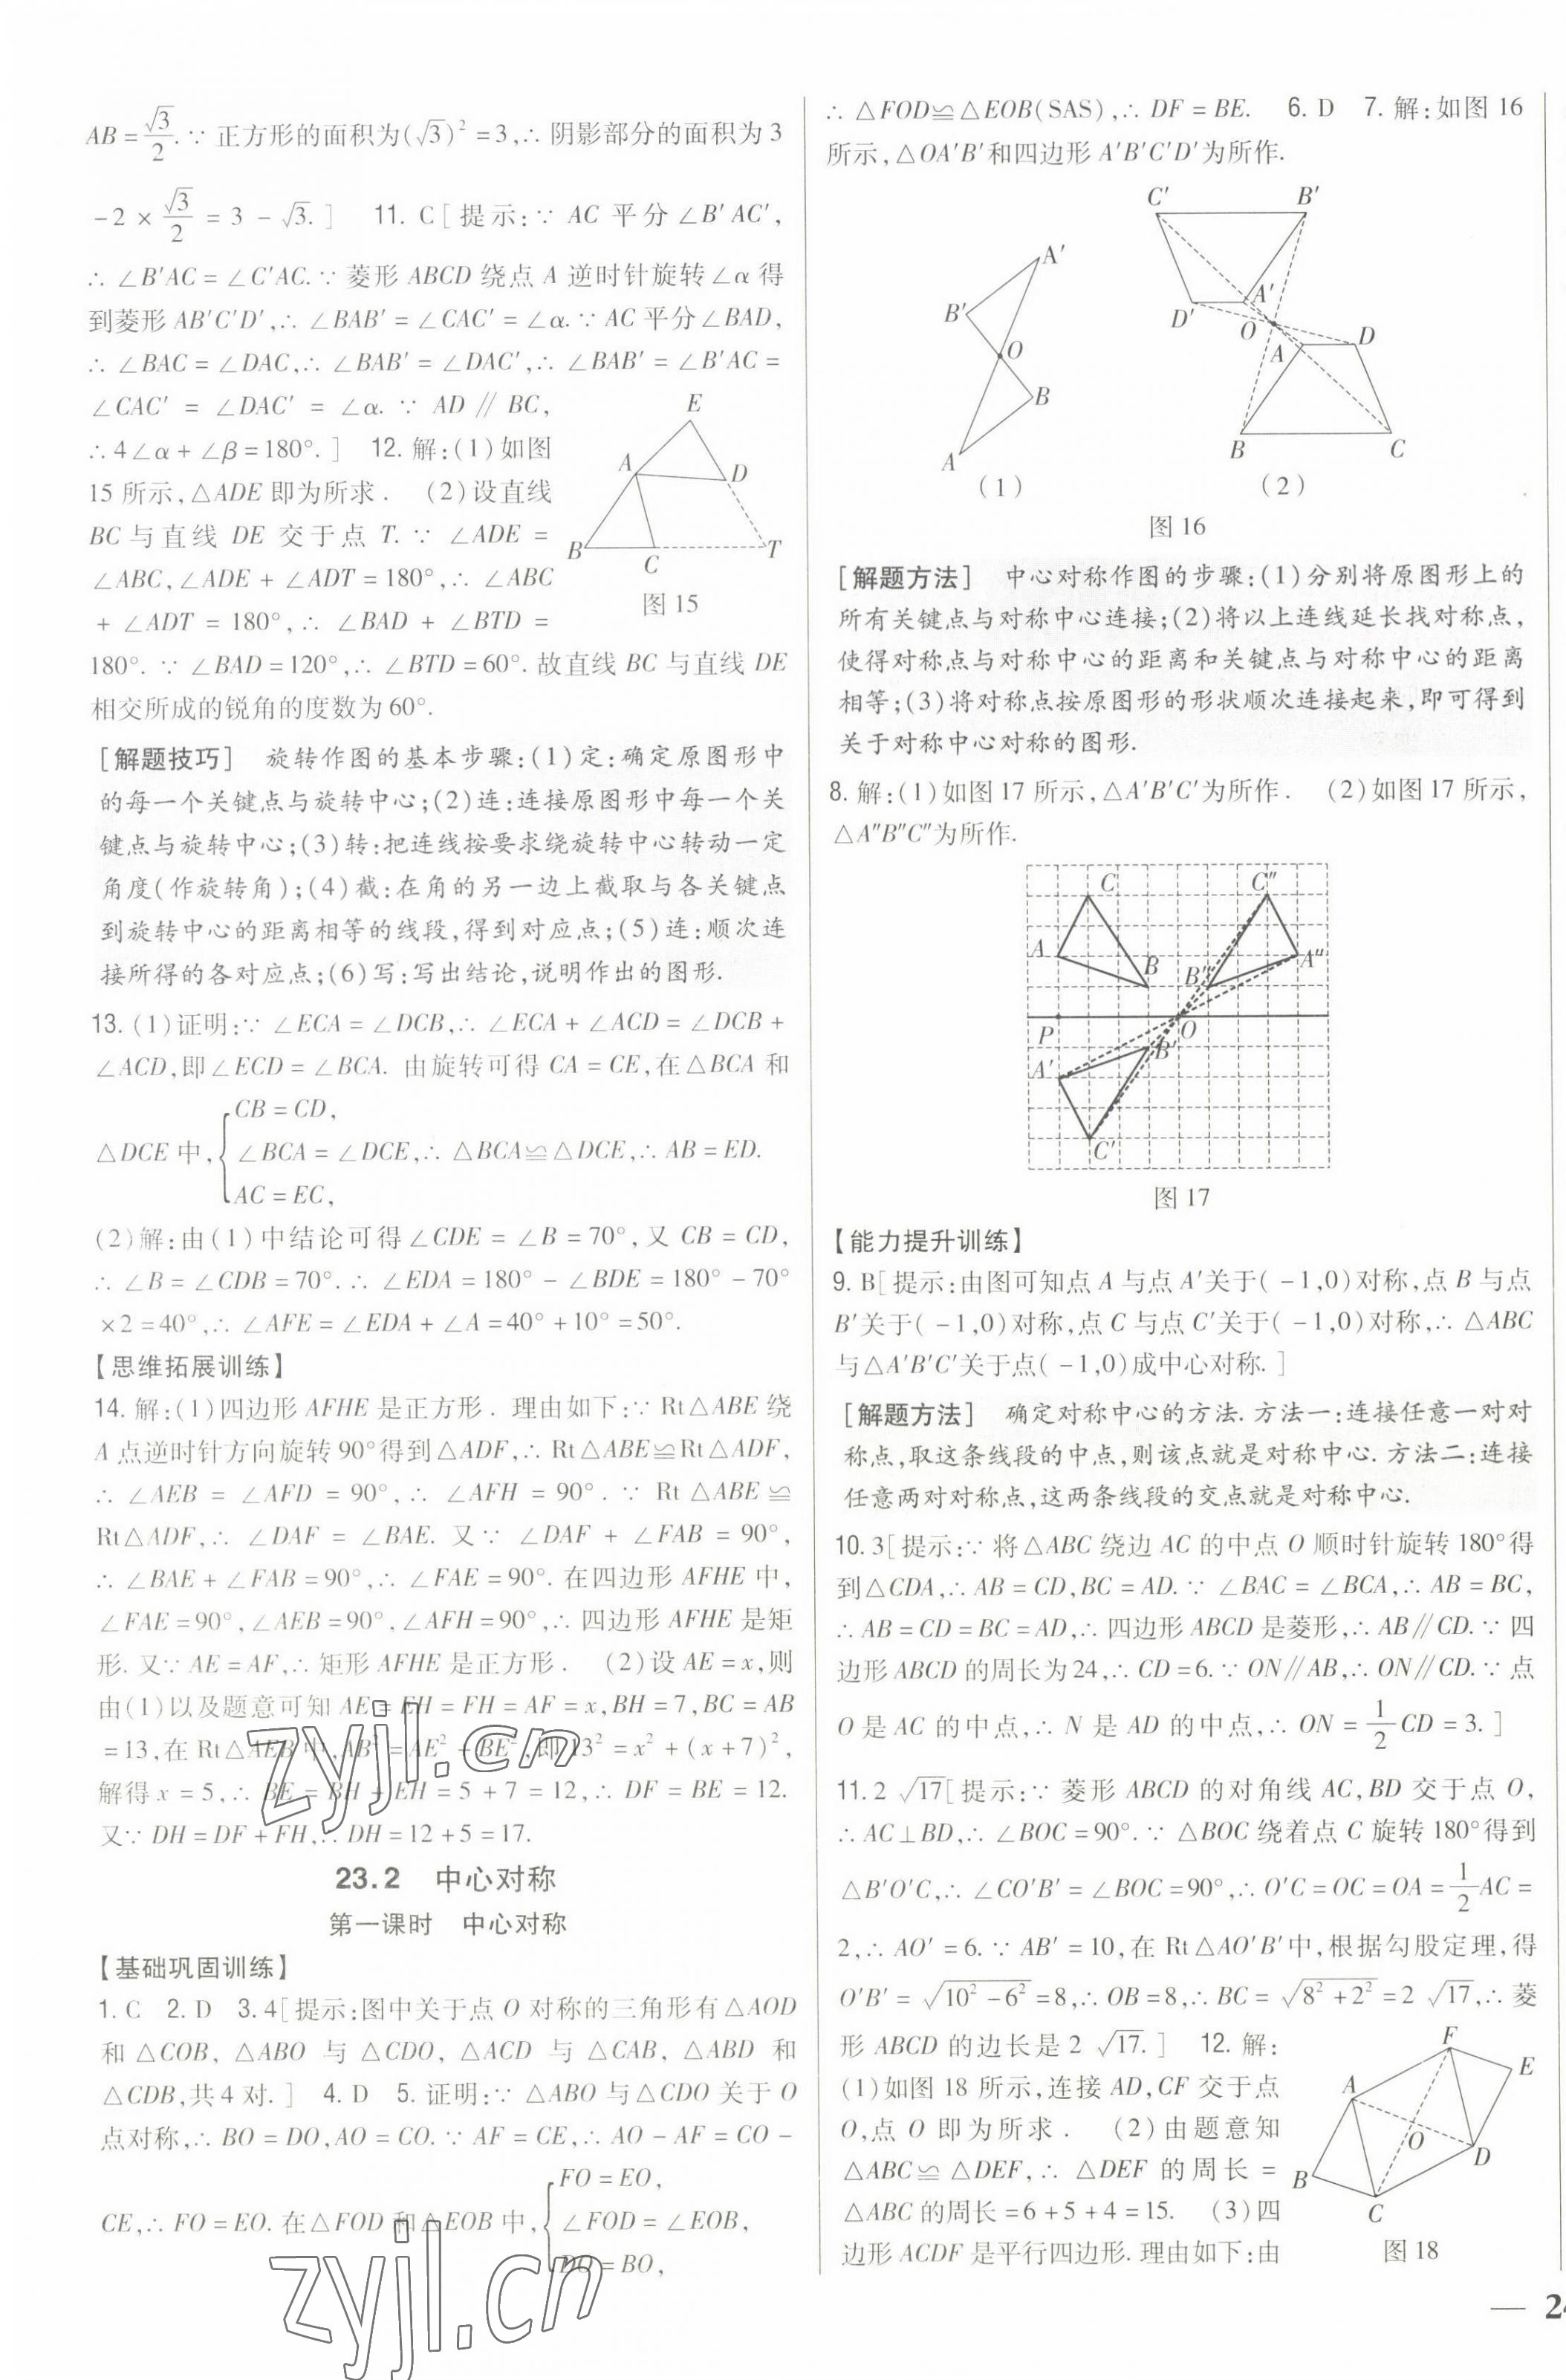 AB=√3/2.∵ 正方形的面积为(√3)²=3,∴ 阴影部分的面积为 3
-2×√3/2=3-√3.] 11. C[提示:∵ AC 平分∠B′AC′,
∴ ∠B′AC=∠C′AC.∵ 菱形 ABCD 绕点 A 逆时针旋转∠α 得
到菱形 AB′C′D′,∴ ∠BAB′=∠CAC′=∠α.∵ AC 平分∠BAD,
∴ ∠BAC=∠DAC,∴ ∠BAB′=∠DAC′,∴ ∠BAB′=∠B′AC=
∠CAC′=∠DAC′=∠α.∵ AD∥BC,
∴4∠α+∠β=180°.] 12. 解:(1)如图
15 所示,△ADE 即为所求. (2)设直线
BC 与直线 DE 交于点 T.∵ ∠ADE=
∠ABC,∠ADE+∠ADT=180°,∴ ∠ABC
+∠ADT=180°,∴ ∠BAD+∠BTD=
E
A
D
B
C
T
图 15
180°.∵ ∠BAD=120°,∴ ∠BTD=60°.故直线 BC 与直线 DE
相交所成的锐角的度数为 60°.
[解题技巧] 旋转作图的基本步骤:(1)定:确定原图形中
的每一个关键点与旋转中心;(2)连:连接原图形中每一个关
键点与旋转中心;(3)转:把连线按要求绕旋转中心转动一定
角度(作旋转角);(4)截:在角的另一边上截取与各关键点
到旋转中心的距离相等的线段,得到对应点;(5)连:顺次连
接所得的各对应点;(6)写:写出结论,说明作出的图形.
13. (1)证明:∵ ∠ECA=∠DCB,∴ ∠ECA+∠ACD=∠DCB+
∠ACD,即∠ECD=∠BCA. 由旋转可得 CA=CE,在△BCA 和
CB=CD,
△DCE 中,{∠BCA=∠DCE,∴ △BCA≌△DCE,∴ AB=ED.
AC=EC,
(2)解:由(1)中结论可得∠CDE=∠B=70°,又 CB=CD,
∴ ∠B=∠CDB=70°.∴ ∠EDA=180°-∠BDE=180°-70°
×2=40°,∴ ∠AFE=∠EDA+∠A=40°+10°=50°.
【思维拓展训练】
14. 解:(1)四边形 AFHE 是正方形. 理由如下:∵ Rt△ABE 绕
A 点逆时针方向旋转 90°得到△ADF,∴ Rt△ABE≌Rt△ADF,
∴ ∠AEB=∠AFD=90°,∴ ∠AFH=90°.∵ Rt△ABE≌
Rt△ADF,∴ ∠DAF=∠BAE. 又∵ ∠DAF+∠FAB=90°,
∴ ∠BAE+∠FAB=90°,∴ ∠FAE=90°. 在四边形 AFHE 中,
∠FAE=90°,∠AEB=90°,∠AFH=90°,∴ 四边形 AFHE 是矩
形. 又∵ AE=AF,∴ 矩形 AFHE 是正方形. (2)设 AE=x,则
由(1)以及题意可知 AE=EH=FH=AF=x,BH=7,BC=AB
=13,在 Rt△AEB 中,AB²=AE²+BE²,即 13²=x²+(x+7)²,
解得 x=5,∴ BE=BH+EH=5+7=12,∴ DF=BE=12.
又∵ DH=DF+FH,∴ DH=12+5=17.
zyjl.cn
23.2 中心对称
第一课时 中心对称
【基础巩固训练】
1. C 2. D 3. 4[提示:图中关于点 O 对称的三角形有△AOD
和△COB,△ABO 与△CDO,△ACD 与△CAB,△ABD 和
△CDB,共 4 对.] 4. D 5. 证明:∵ △ABO 与△CDO 关于 O
点对称,∴ BO=DO,AO=CO.∵ AF=CE,∴ AO-AF=CO-
FO=EO,
CE,∴ FO=EO. 在△FOD 和△EOB 中,{∠FOD=∠EOB,
DO=BO,
zyjl.cn
∴ △FOD≌△EOB(SAS),∴ DF=BE. 6. D 7. 解:如图 16
所示,△OA′B′和四边形 A′B′C′D′为所作.
A′
B′
O
B
A
(1)
C′
B′
A′
D′
O
A
D
B
C
(2)
图 16
[解题方法] 中心对称作图的步骤:(1)分别将原图形上的
所有关键点与对称中心连接;(2)将以上连线延长找对称点,
使得对称点与对称中心的距离和关键点与对称中心的距离
相等;(3)将对称点按原图形的形状顺次连接起来,即可得到
关于对称中心对称的图形.
8. 解:(1)如图 17 所示,△A′B′C′为所作. (2)如图 17 所示,
△A″B″C″为所作.
C
C″
A
B
B″
A″
P
O
A′
B′
C′
图 17
【能力提升训练】
9. B[提示:由图可知点 A 与点 A′关于(-1,0)对称,点 B 与点
B′关于(-1,0)对称,点 C 与点 C′关于(-1,0)对称,∴ △ABC
与△A′B′C′关于点(-1,0)成中心对称.]
[解题方法] 确定对称中心的方法. 方法一:连接任意一对对
称点,取这条线段的中点,则该点就是对称中心. 方法二:连接
任意两对对称点,这两条线段的交点就是对称中心.
10. 3[提示:∵ 将△ABC 绕边 AC 的中点 O 顺时针旋转 180°得
到△CDA,∴ AB=CD,BC=AD.∵ ∠BAC=∠BCA,∴ AB=BC,
∴ AB=CD=BC=AD,∴ 四边形 ABCD 是菱形,∴ AB∥CD.∵ 四
边形 ABCD 的周长为 24,∴ CD=6.∵ ON∥AB,∴ ON∥CD.∵ 点
O 是 AC 的中点,∴ N 是 AD 的中点,∴ ON=1/2 CD=3.]
11. 2√17[提示:∵ 菱形 ABCD 的对角线 AC,BD 交于点 O,
∴ AC⊥BD,∴ ∠BOC=90°.∵ △BOC 绕着点 C 旋转 180°得到
△B′O′C,∴ ∠CO′B′=∠BOC=90°,∴ O′C=OC=OA=1/2 AC=
2,∴ AO′=6.∵ AB′=10,在 Rt△AO′B′中,根据勾股定理,得
O′B′=√(10²-6²)=8,∴ OB=8,∴ BC=√(8²+2²)=2√17,∴ 菱
形 ABCD 的边长是 2√17.] 12. 解:
(1)如图 18 所示,连接 AD,CF 交于点
O,点 O 即为所求. (2)由题意知
△ABC≌△DEF,∴ △DEF 的周长=
△ABC 的周长=6+5+4=15. (3)四
边形 ACDF 是平行四边形. 理由如下:由
F
E
A
O
D
B
C
图 18
— 24